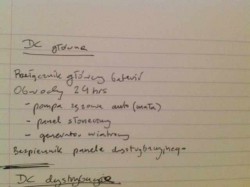 DC główne
Przełącznik główny baterii
Obwody 24hrs
- pompa zęzowa auto (mała)
- panel słoneczny
- generator wiatrowy
Bezpiecznik panelu dystrybucyjnego
DC dystrybucyjne